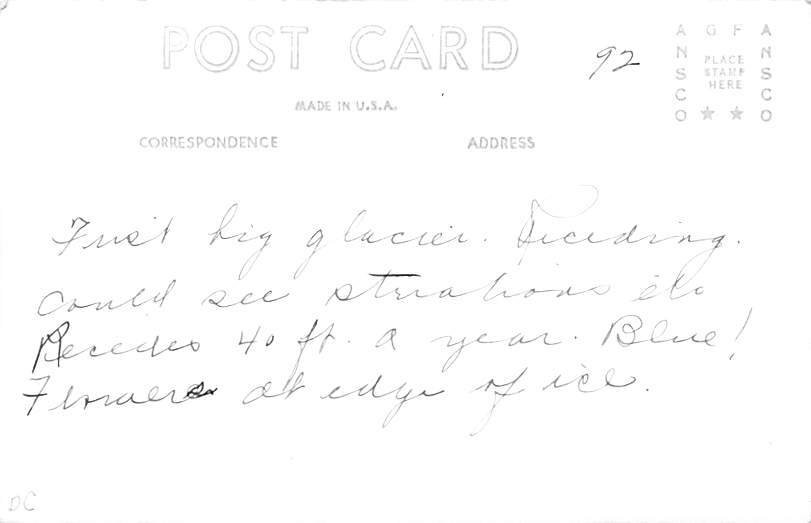 POST CARD
92
A G F A
N N
S S
C C
O O
PLACE
STAMP
HERE
MADE IN U.S.A.
CORRESPONDENCE ADDRESS
First big glacier. Receding.
Could see striations etc
Recedes 40 ft. a year. Blue!
Flowers at edge of ice.
DC